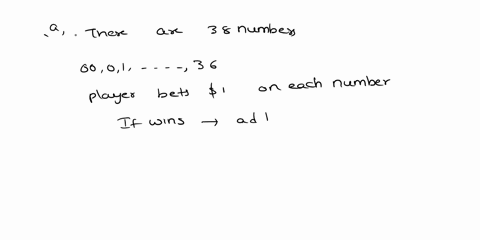 a, . There are 38 numbers
00, 0, 1, - - - - -, 36
player bets $1 on each number
If wins → ad l